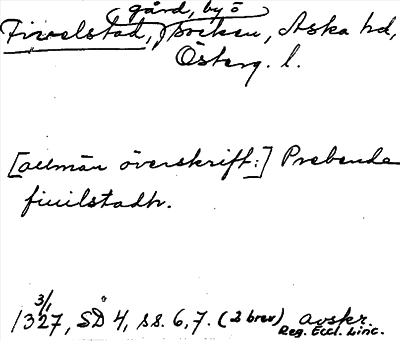 (gård, by ö
Fivelstad, socken, Aska hd,
Österg. l.
[allmän överskrift:] Prebende
fiuilstadh.
3/1
1327, SD 4, ss. 6, 7. (2 brev) avskr.
Reg. Eccl. Linc.